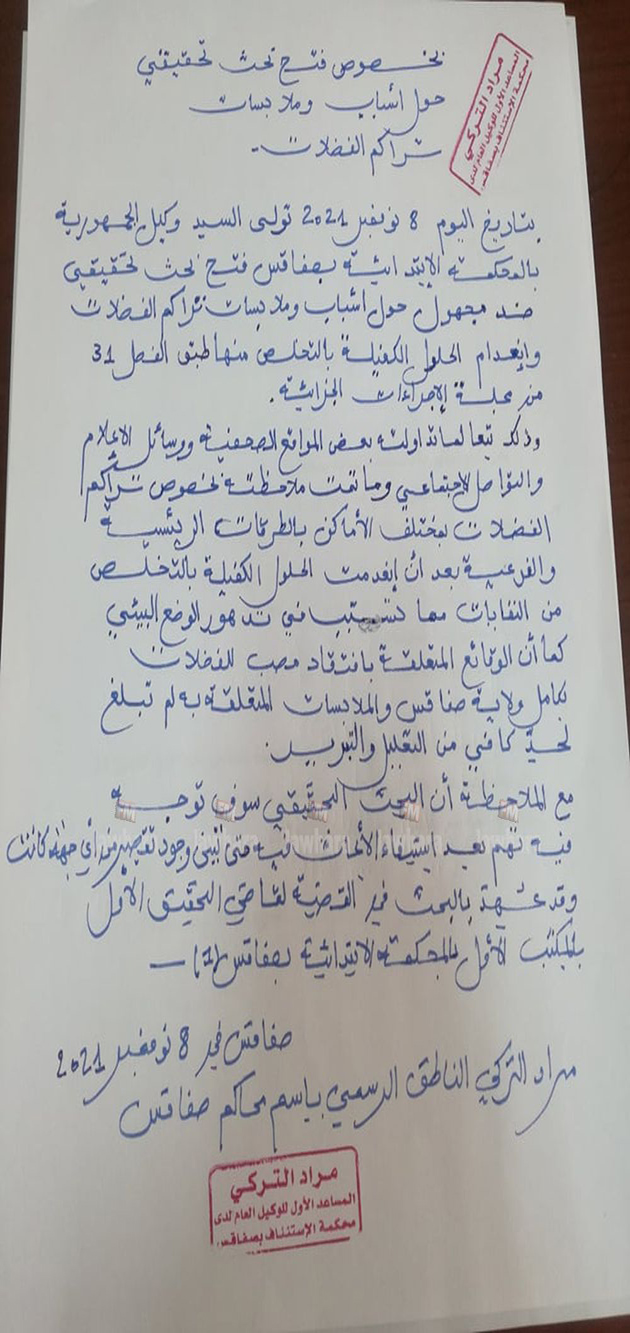 بخصوص فتح بحث تحقيقي
حول اسباب وملابسات
تراكم الفضلات -
مراد التركي
المساعد الأول للوكيل العام لدى
محكمة الإستئناف بصفاقس
بتاريخ اليوم 8 نوفمبر 2021 تولى السيد وكيل الجمهورية
بالمحكمة الابتدائية بصفاقس فتح بحث تحقيقي
ضد مجهول حول اسباب وملابسات تراكم الفضلات
وإنعدام الحلول الكفيلة بالتخلص منها طبق الفصل 31
من مجلة الإجراءات الجزائية.
وذلك تبعا لما تداولته بعض المواقع الصحفية ووسائل الاعلام
والتواصل الاجتماعي وما تمت ملاحظته بخصوص تراكم
الفضلات بمختلف الأماكن بالطرقات الرئيسية
والفرعية بعد أن إنعدمت الحلول الكفيلة بالتخلص
من النفايات مما تسبب في تدهور الوضع البيئي
كما أن الوقائع المتعلقة بافتقاد مصب للفضلات
بكامل ولاية صفاقس والملابسات المتعلقة به لم تبلغ
لحد كافي من التعليل والتبرير.
مع الملاحظة أن البحث التحقيقي سوف توجه
فيه تهم بعد إستيفاء الأبحاث فيه متى ثبت وجود تقصير من أي جهة كانت
وقد عهد بالبحث في القضية لقاضي التحقيق الأول
بالمكتب الأول بالمحكمة الابتدائية بصفاقس (1) —
صفاقس في 8 نوفمبر 2021
مراد التركي الناطق الرسمي باسم محاكم صفاقس
مراد التركي
المساعد الأول للوكيل العام لدى
محكمة الإستئناف بصفاقس